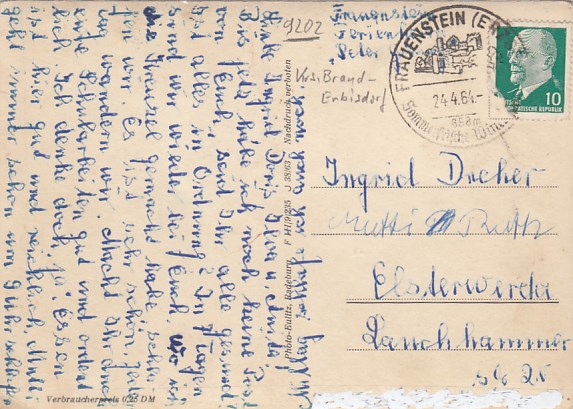 Frauenstein
Ferien
"Peter
9202
Krs. Brand-
Erbisdorf
FRAUENSTEIN (ERZ
24.4.64.-
Sommerfrische Winter
10
DEUTSCHE
DEMOKRATISCHE REPUBLIK
Ingrid Dreher
Mutti Ruth
Elsterwerda
Lauchhammer
Liebe Ingrid, Doris,
Bis jetzt habe ich noch keine Post
von Euch. Seid Ihr alle gesund?
Ist alles in Ordnung? In Tagen
sind wir wieder bei Euch. Wo ich
die Kreuzel gemacht habe, schla-
fen wir. Es ist sehr schön hier.
wandern wir. Macht Ihr auch
Eure Schularbeiten gut und ordent-
lich. Ich denke doch ja. Essen
ist hier gut und reichlich. Mutti
geht immer schon um 9 Uhr schlafen
Tag schlafe ich auch noch.
Photo-Kulitz, Radeburg F
J 38/63 Nachdruck verboten
Verbraucherpreis 0,25 DM